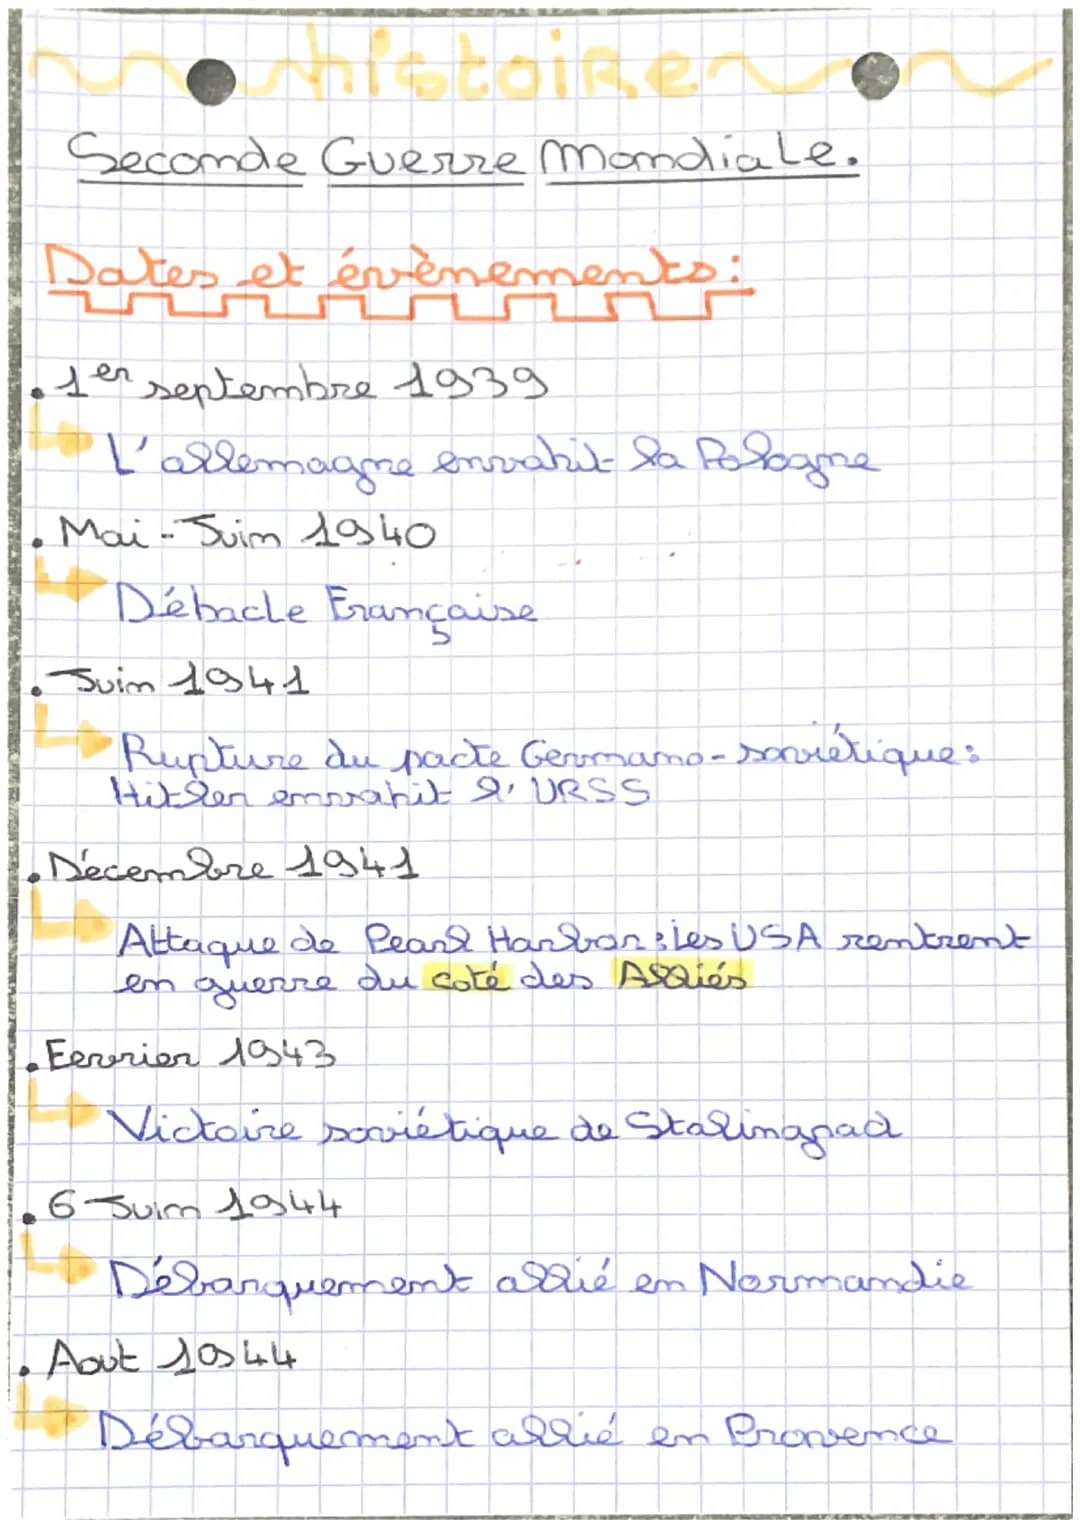 histoire
Seconde Guerre Mondiale.
Dates et évènements:
. 1er septembre 1939
L'allemagne envahit la Pologne
. Mai - Juin 1940
Débacle Française
. Juin 1941
Rupture du pacte Germano-soviétique:
Hitler envahit l'URSS
. Décembre 1941
Attaque de Pearl Harbor : les USA rentrent
en guerre du coté des Alliés
. Fevrier 1943
Victoire soviétique de Stalingrad
. 6 Juin 1944
Débarquement allié en Normandie
. Aout 1944
Débarquement allié en Provence